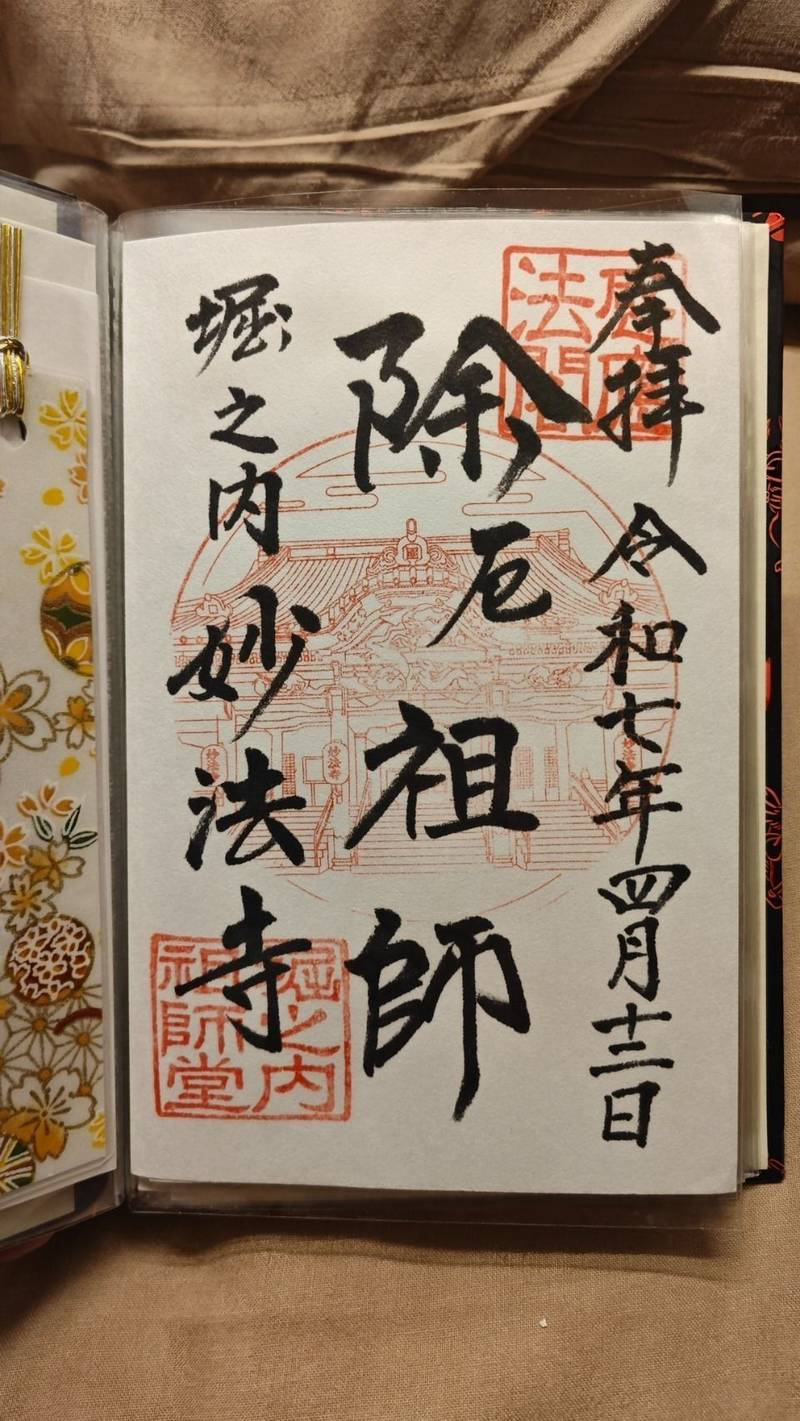 奉拝 令和七年四月十三日
除厄祖師
堀之内 妙法寺
堀之内
祖師堂
妙法寺